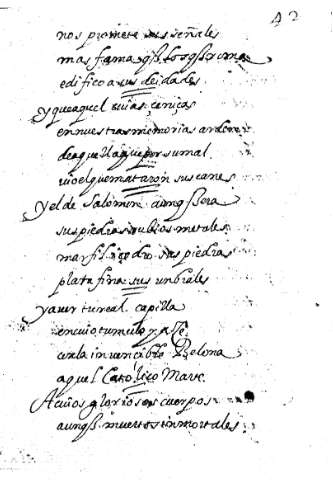 42
nos promete sus señales
mas fama q̃ los q̃ Roma
edifico a sus deidades
y que aquel cuias ceniças
en nuestras memorias arden
de aquella que por su mal
vio el que mataron sus canes
y el de Salomon aunq̃ era
sus piedras rubios metales
marfil i cedro sus piedras
plata fina sus unbrales
y a ver tu real capilla
en cuio tumulo yaçe
con la invencible Belona
aquel Catolico Marte
A cuios gloriosos cuerpos
aunq̃ muertos inmortales